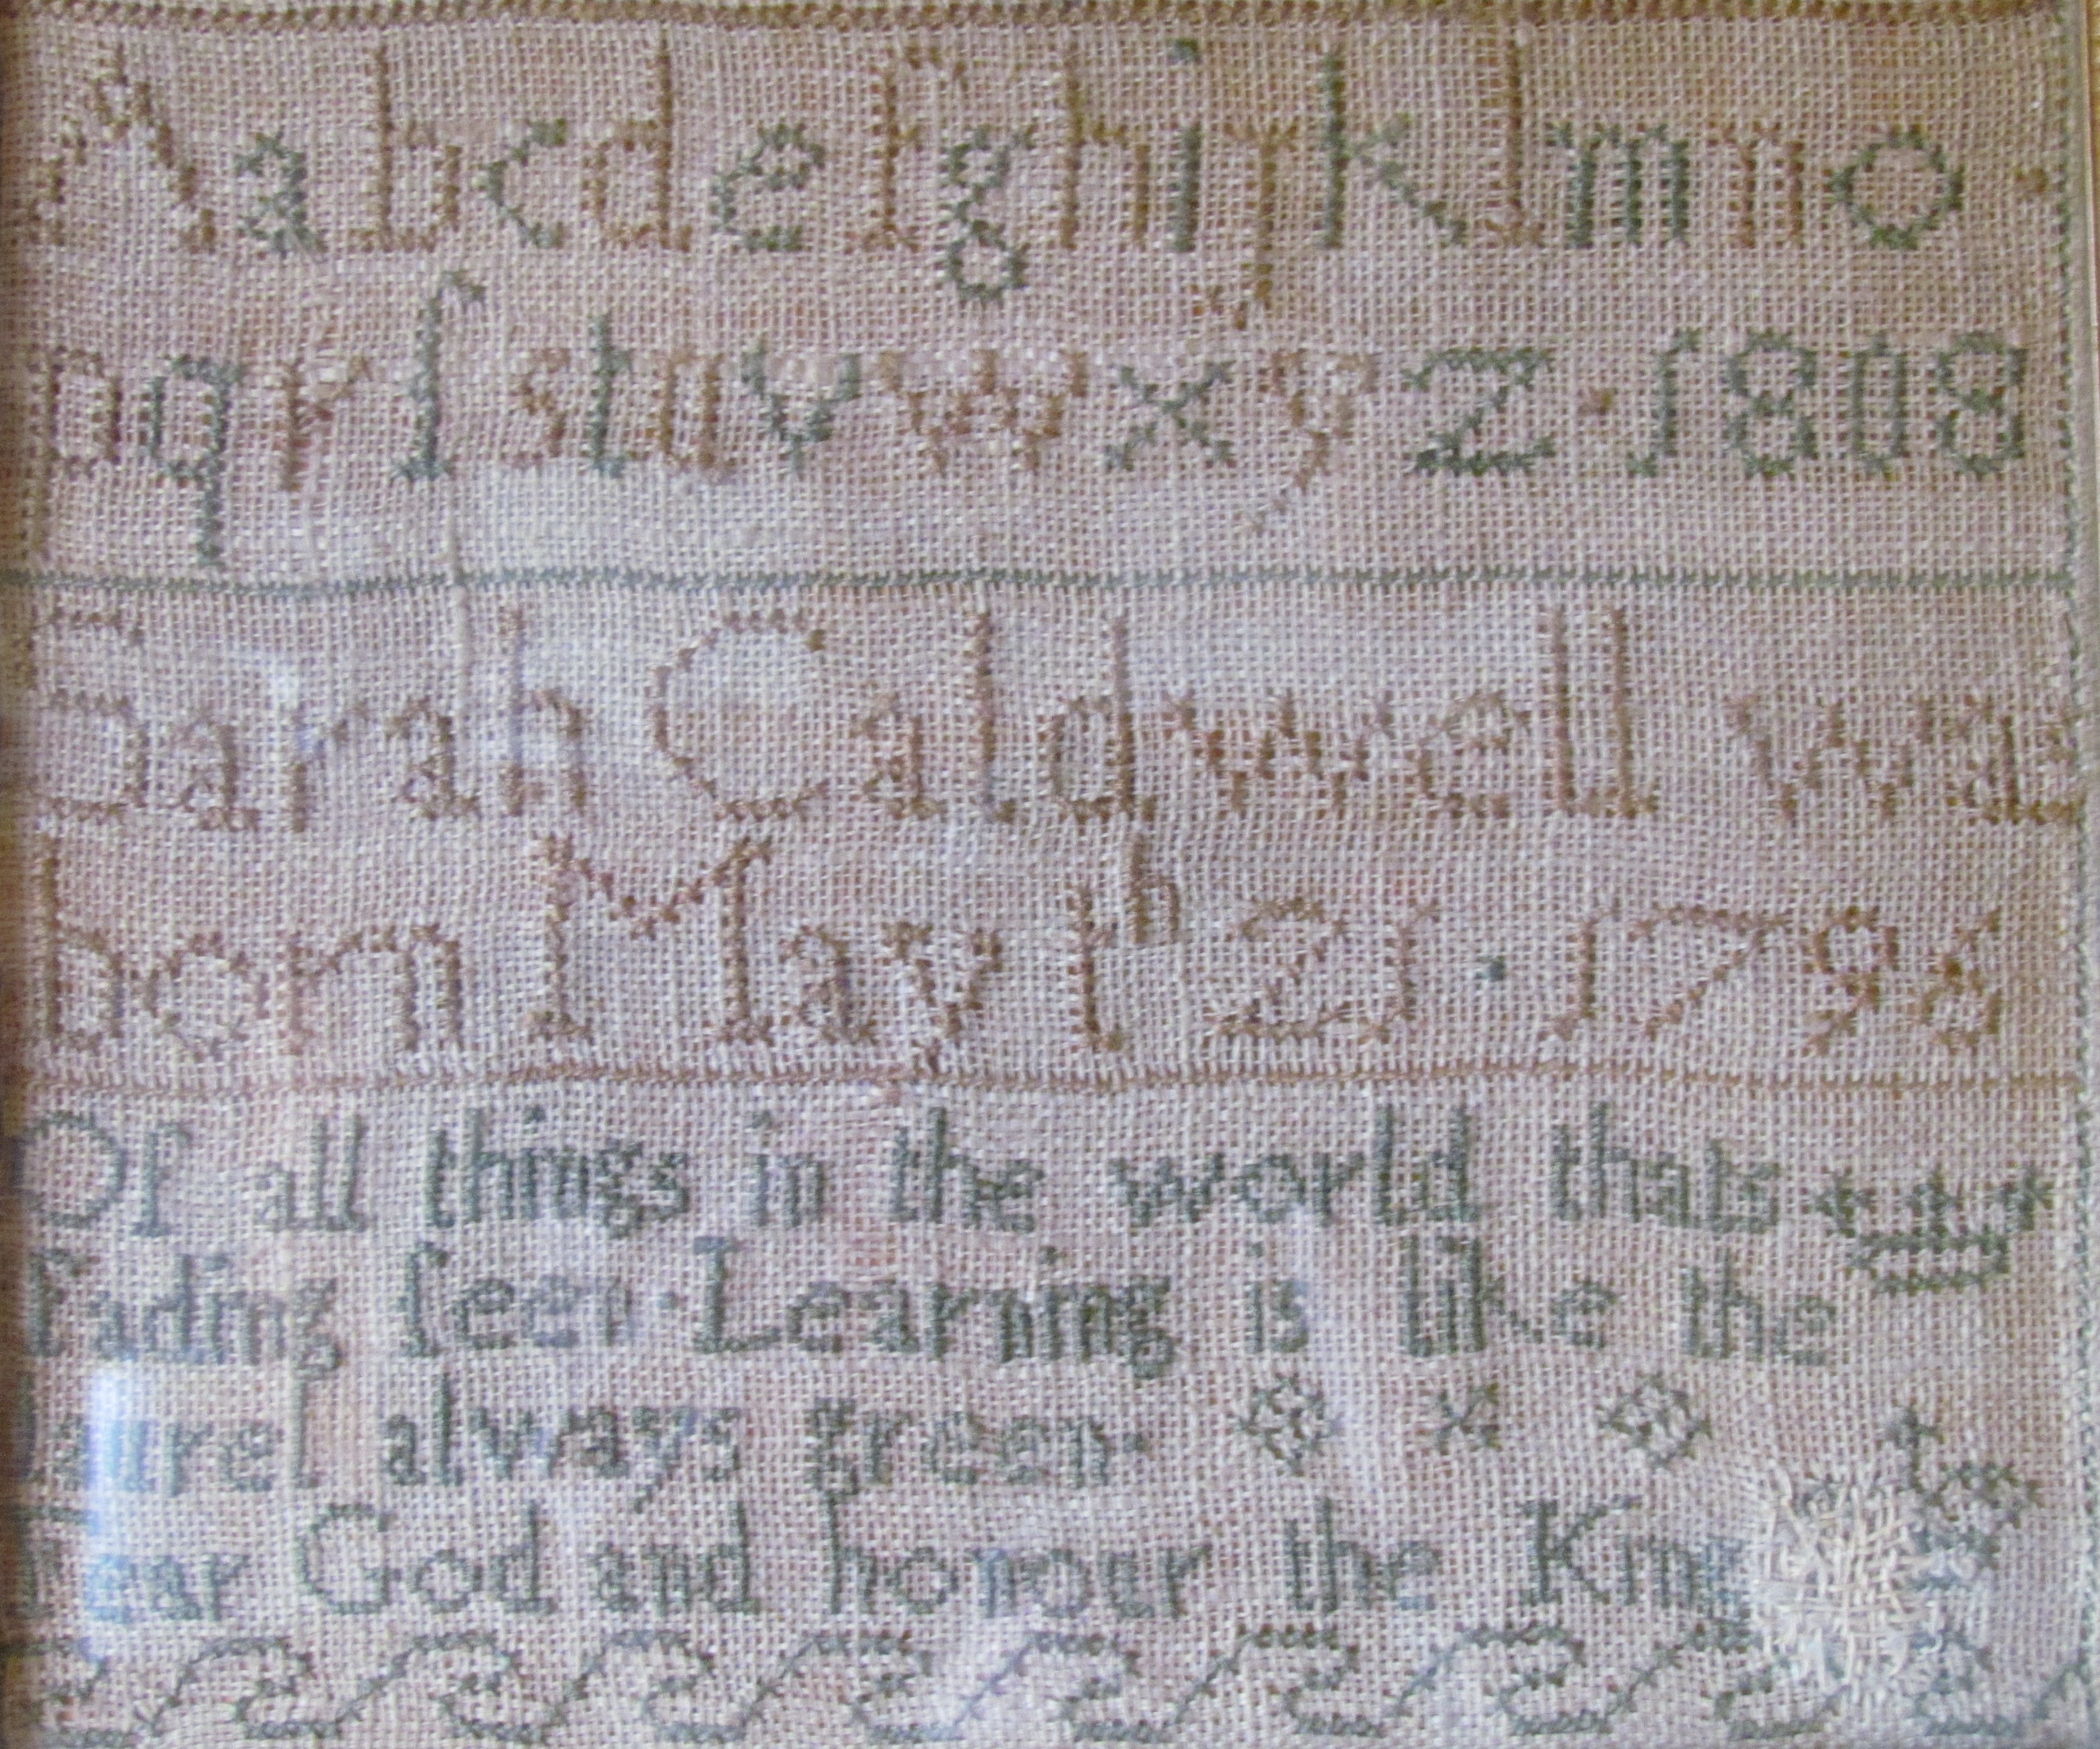 Aabcdefghijklmno ·
pqrſstuvwxyz·1808
Sarah Caldwell was
born May th 21 · 1796
Of all things in the world thats
fading ſeen·Learning is like the
laurel always green·
Fear God and honour the King